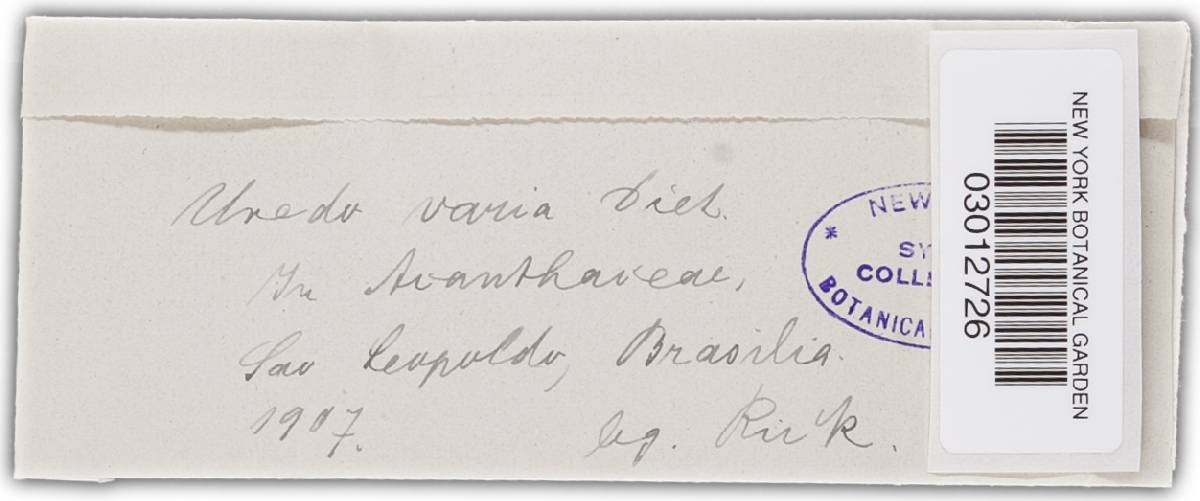 Uredo varia Diet.
In Acanthaceae,
Sao Leopoldo, Brasilia.
1907. lg. Rick.
NEW
SY
COLLE
BOTANICA
NEW YORK BOTANICAL GARDEN
03012726